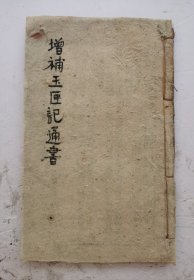 增補玉匣記通書